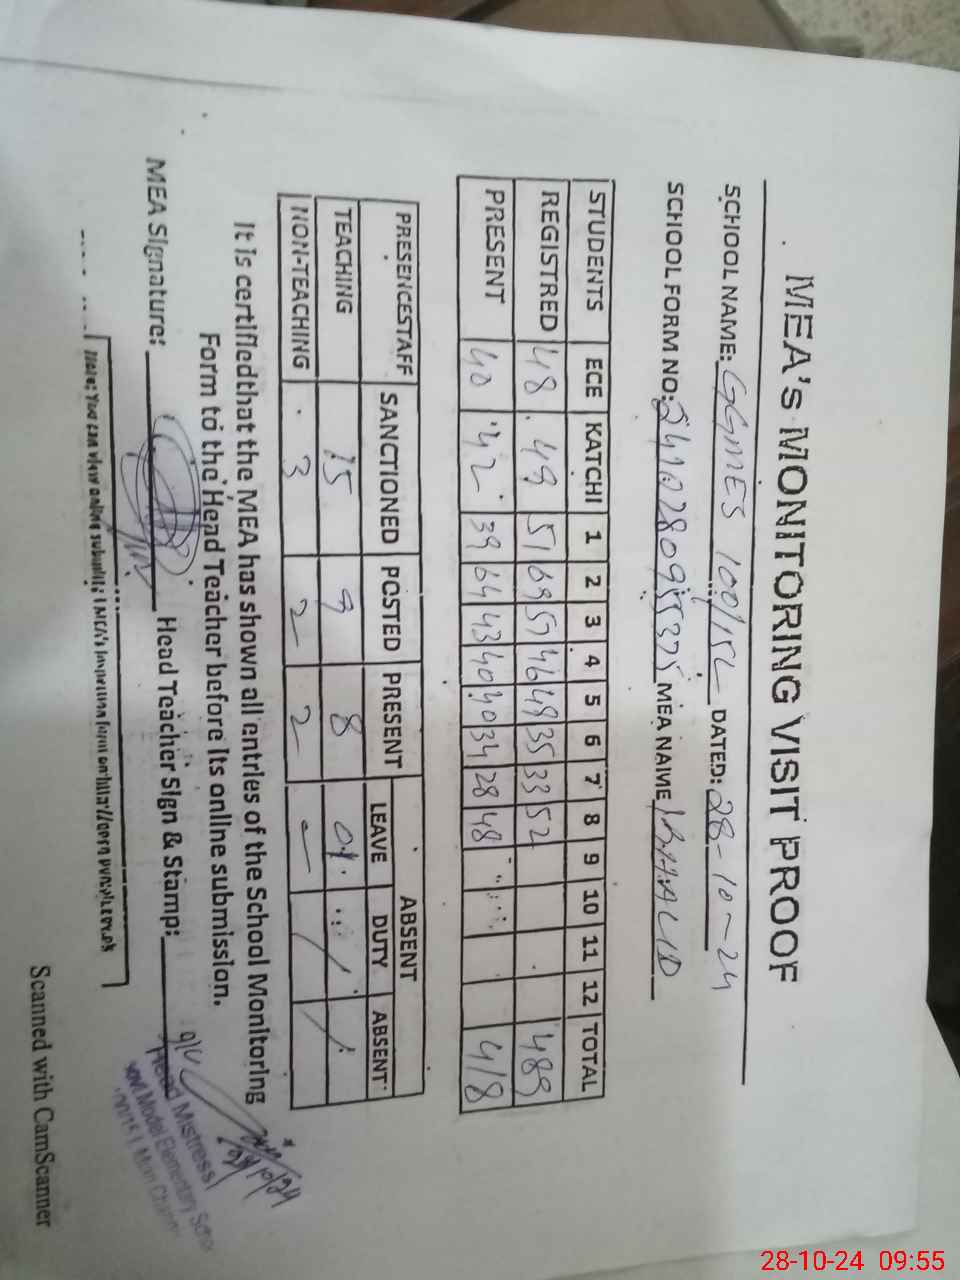 MEA's MONITORING VISIT PROOF
SCHOOL NAME: GGMES 100/15L DATED: 28-10-24
SCHOOL FORM NO: MEA NAME KHALID
STUDENTS ECE KATCHI 1 2 3 4 5 6 7 8 9 10 11 12 TOTAL
REGISTRED 48 49 51 69 57 46 49 35 33 52 489
PRESENT 40 42 39 64 43 40 40 34 28 48 418
PRESENCESTAFF SANCTIONED POSTED PRESENT ABSENT
LEAVE DUTY ABSENT
TEACHING 15 9 8 01
NON-TEACHING 3 2 2 –
It is certifiedthat the MEA has shown all entries of the School Monitoring
Form to the Head Teacher before its online submission.
MEA Signature: Head Teacher Sign & Stamp:
Head Mistress
Govt. Model Elementary School
Note: You can view online submitted MEA's Inspection form on
Scanned with CamScanner
28-10-24 09:55